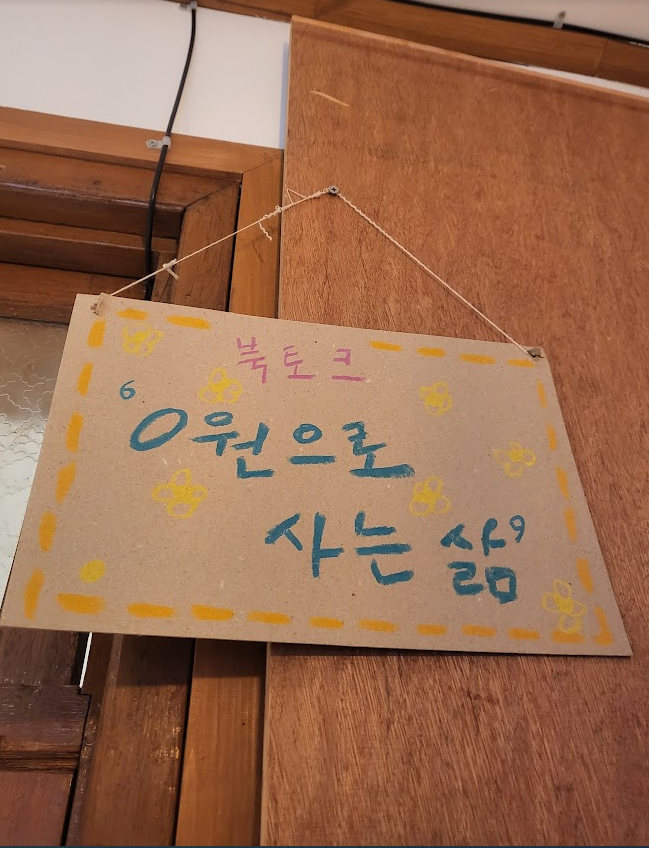 북토크
‘0원으로
사는 삶’